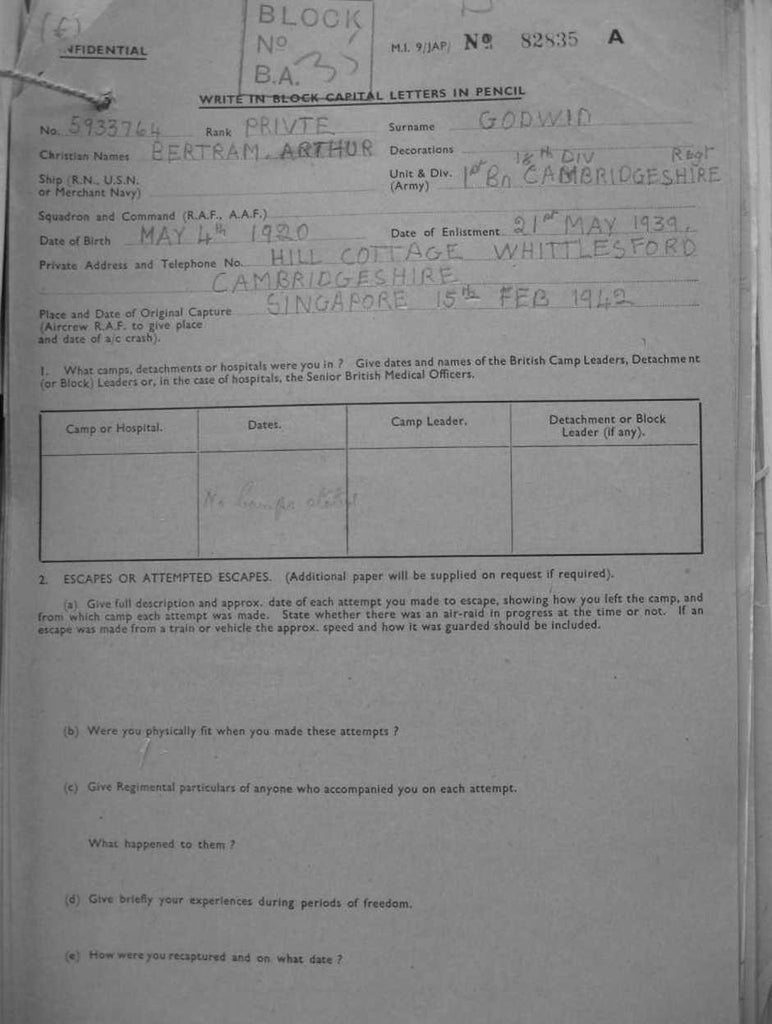 (E)
BLOCK
NFIDENTIAL
No
B.A. 33
M.I. 9/JAP/ No 82835 A
WRITE IN BLOCK CAPITAL LETTERS IN PENCIL
No. 5933764 Rank PRIVTE Surname GODWIN
Christian Names BERTRAM. ARTHUR Decorations
Ship (R.N., U.S.N. or Merchant Navy)
Unit & Div. (Army) 18th DIV 1st Bn CAMBRIDGESHIRE Regt
Squadron and Command (R.A.F., A.A.F.)
Date of Birth MAY 4th 1920 Date of Enlistment 21st MAY 1939.
Private Address and Telephone No. HILL COTTAGE WHITTLESFORD
CAMBRIDGESHIRE
Place and Date of Original Capture SINGAPORE 15th FEB 1942
(Aircrew R.A.F. to give place
and date of a/c crash).
1. What camps, detachments or hospitals were you in ? Give dates and names of the British Camp Leaders, Detachment
(or Block) Leaders or, in the case of hospitals, the Senior British Medical Officers.
Camp or Hospital. Dates. Camp Leader. Detachment or Block
Leader (if any).
No Camps stated
2. ESCAPES OR ATTEMPTED ESCAPES. (Additional paper will be supplied on request if required).
(a) Give full description and approx. date of each attempt you made to escape, showing how you left the camp, and
from which camp each attempt was made. State whether there was an air-raid in progress at the time or not. If an
escape was made from a train or vehicle the approx. speed and how it was guarded should be included.
(b) Were you physically fit when you made these attempts ?
(c) Give Regimental particulars of anyone who accompanied you on each attempt.
What happened to them ?
(d) Give briefly your experiences during periods of freedom.
(e) How were you recaptured and on what date ?